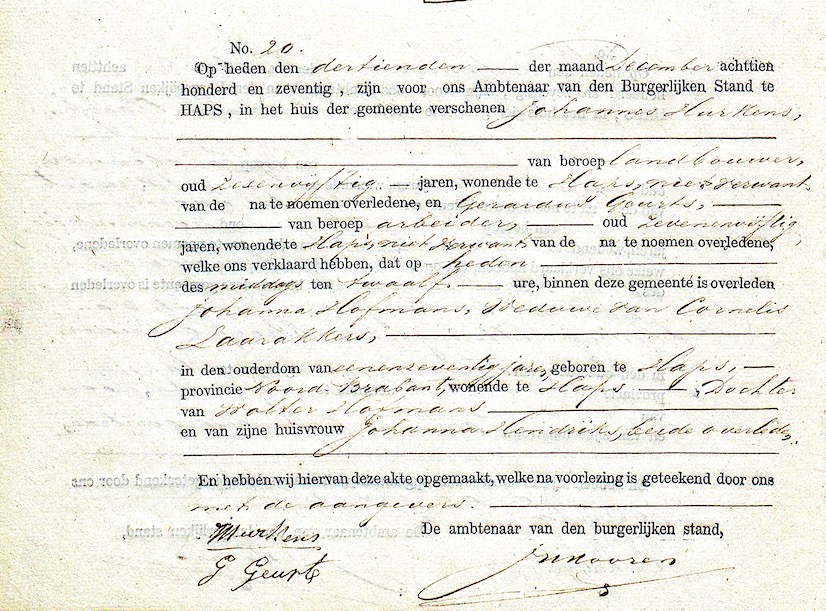 No. 20.
Op heden den dertienden der maand December achttien
honderd en zeventig, zijn voor ons Ambtenaar van den Burgerlijken Stand te
HAPS, in het huis der gemeente verschenen Johannes Hurkens,
van beroep landbouwer,
oud zesenvijftig jaren, wonende te Haps, niet verwant
van de na te noemen overledene, en Gerardus Geurts,
van beroep arbeider, oud zevenenvijftig
jaren, wonende te Haps, niet verwant van de na te noemen overledene,
welke ons verklaard hebben, dat op heden
des middags ten twaalf ure, binnen deze gemeente is overleden
Johanna Hofmans, Weduwe van Cornelis
Laarakkers,
in den ouderdom van eenenzeventig jaren, geboren te Haps,
provincie Noord-Brabant, wonende te Haps, Dochter
van Wolter Hofmans
en van zijne huisvrouw Johanna Hendriks, beide overleden.
En hebben wij hiervan deze akte opgemaakt, welke na voorlezing is geteekend door ons
met de aangevers.
De ambtenaar van den burgerlijken stand,
Hurkens
G Geurts